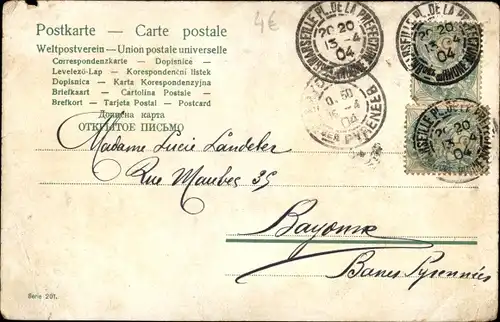 4€
Postkarte — Carte postale
Weltpostverein – Union postale universelle
Correspondenzkarte – Dopisnice
Levelező-Lap – Korespondenční lístek
Dopisnica – Karta Korespondenzyjna
Briefkaart – Cartolina Postale –
Brefkort – Tarjeta Postal – Postcard
Дописна карта
ОТКРЫТОЕ ПИСЬМО
MARSEILLE PL. DE LA PREFECTURE
20 20
13 -4
04
Bses PYRENEES
04
MARSEILLE PL. DE LA PREFECTURE
20 20
13 -4
04
20 20
13 -4
04
Madame Lucie Landeker
Rue Maubec 35
Bayonne
Basses Pyrennées
Serie 201.